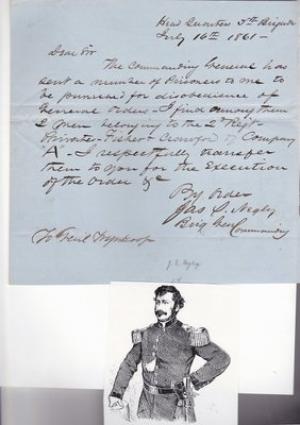 Head Quarters 5th Brigade
July 16th 1861 -
Dear Sir
The Commanding General has
sent a number of Prisoners to me to
be punished for disobedience of
General Orders - I find among them
2 Men belonging to the 2d Regt
Fisher & Crawford of Company
"A" - I respectfully transfer
them to you for the Execution
of the Order &c
By Order
Jas S. Negley
Brig Gen Commanding
To
J. S. Negley